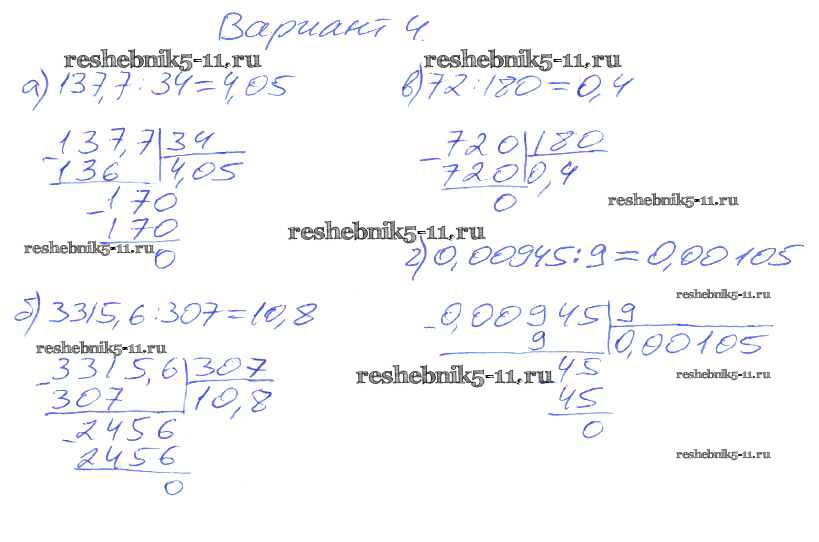 Вариант 4.
reshebnik5-11.ru
reshebnik5-11.ru
а) 137,7 : 34 = 4,05
в) 72 : 180 = 0,4
- 137,7 | 34
136 | 4,05
- 170
170
0
- 720 | 180
720 | 0,4
0
reshebnik5-11.ru
reshebnik5-11.ru
reshebnik5-11.ru
г) 0,00945 : 9 = 0,00105
reshebnik5-11.ru
б) 3315,6 : 307 = 10,8
- 0,00945 | 9
9 | 0,00105
45
45
0
reshebnik5-11.ru
reshebnik5-11.ru
reshebnik5-11.ru
- 3315,6 | 307
307 | 10,8
- 2456
2456
0
reshebnik5-11.ru